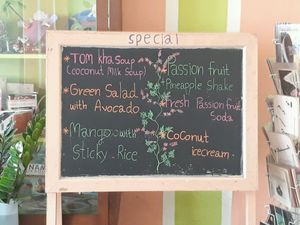 special
*TOM kha Soup
(coconut Milk Soup)
*Green Salad
with Avocado
*Mango with
Sticky Rice
*Passion fruit
Pineapple Shake
*Fresh Passion fruit
Soda
*Coconut
icecream.